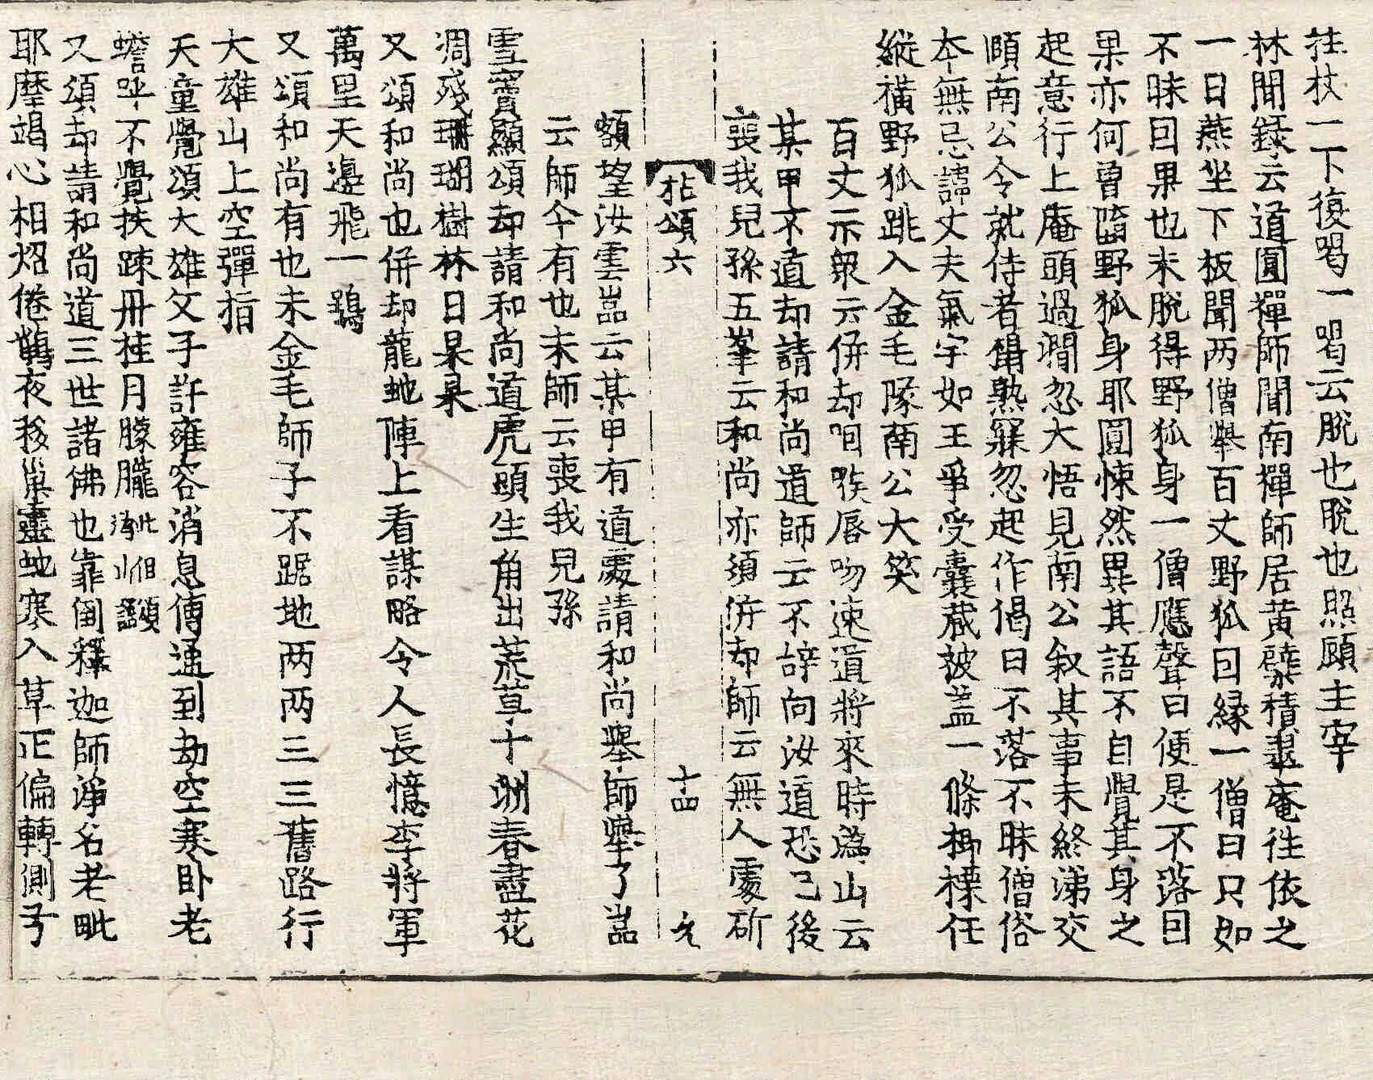 拄杖一下復喝一喝云脫也脫也照顧主宰
林間錄云道圓禪師聞南禪師居黃檗積翠庵徃依之
一日燕坐下板聞两僧舉百丈野狐因緣一僧曰只如
不昧因果也未脫得野狐身一僧應聲曰便是不落因
果亦何曾墮野狐身耶圓悚然異其語不自覺其身之
起意行上庵頭過澗忽大悟見南公叙其事未終涕交
頤南公令就侍者榻熟寐忽起作偈曰不落不昧僧俗
本無忌諱丈夫氣宇如王爭受囊藏被盖一條楖𣗖任
縱橫野狐跳入金毛隊南公大笑
百丈示衆云併却咽喉唇吻速道將來時潙山云
某甲不道却請和尚道師云不辝向汝道恐已後
喪我兒孫五峯云和尚亦須併却師云無人處斫
拈頌六 十四 
額望汝雲嵓云某甲有道處請和尚舉師擧了嵓
云師今有也未師云喪我兒孫
雪竇顯頌却請和尚道虎頭生角出荒草十洲春盡花
凋殘珊瑚樹林日杲杲
又頌和尚也併却龍虵陣上看謀略令人長憶李將軍
萬里天邊飛一鶚
又頌和尚有也未金毛師子不踞地两两三三舊路行
大雄山上空彈指
天童覺頌大雄父子許雍容消息傳通到劫空寒卧老
蟾呼不覺扶踈丹桂月朦朧此但頌潙山
又頌却請和尚道三世諸佛也靠倒釋迦師淨名老毗
耶摩竭心相炤倦鶴夜移巢靈虵寒入草正偏轉側兮